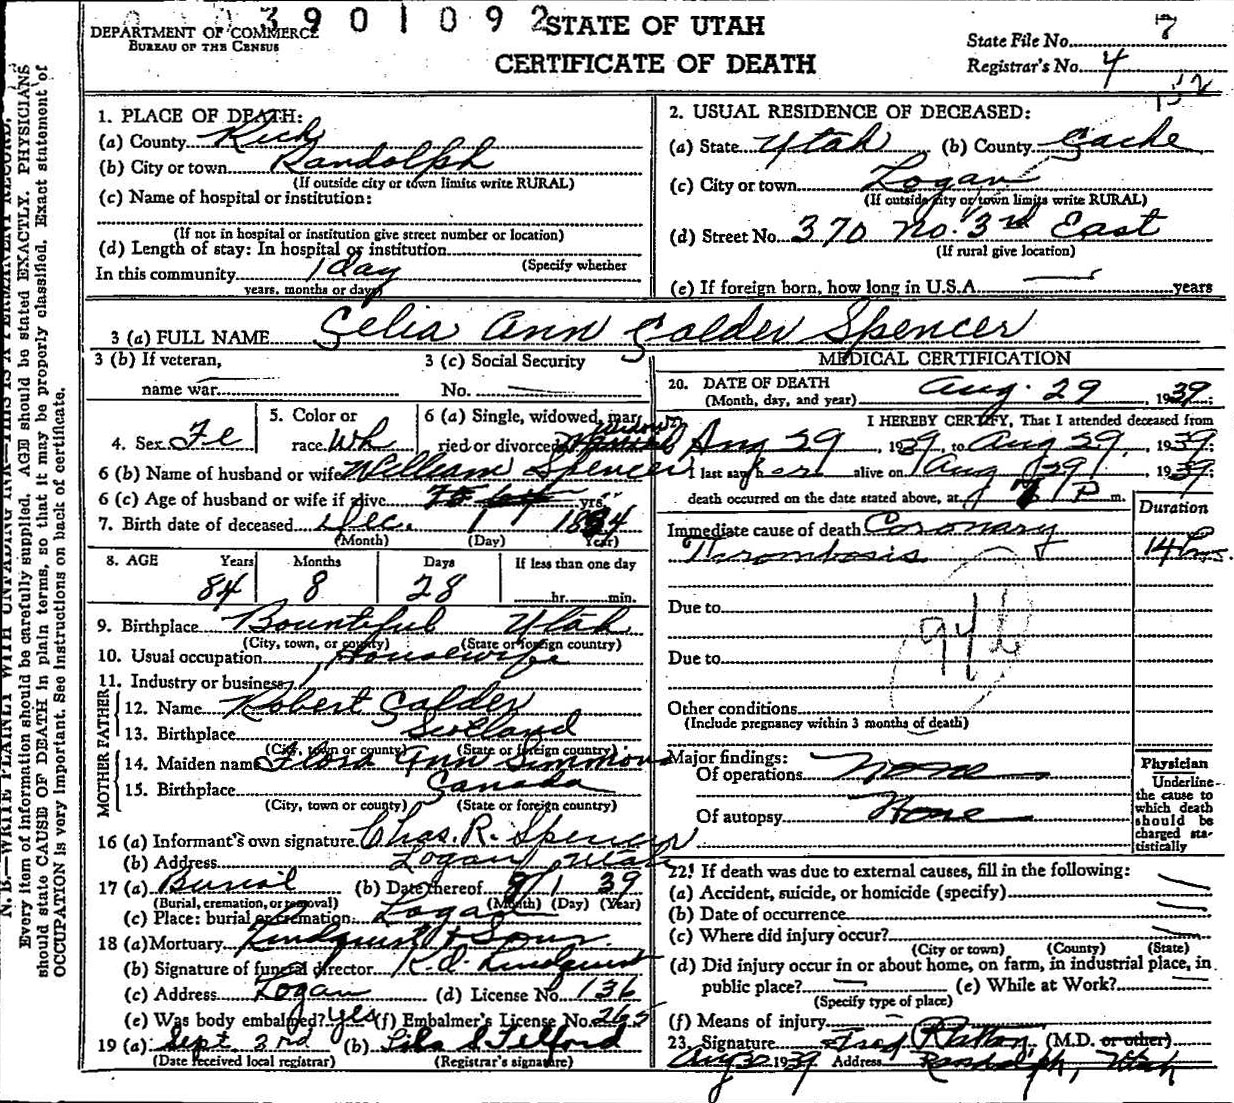 3901092
DEPARTMENT OF COMMERCE
BUREAU OF THE CENSUS
STATE OF UTAH
CERTIFICATE OF DEATH
State File No. 7
Registrar's No. 4
N. B.—WRITE PLAINLY WITH UNFADING INK—THIS IS A PERMANENT RECORD.
Every item of information should be carefully supplied. AGE should be stated EXACTLY. PHYSICIANS
should state CAUSE OF DEATH in plain terms, so that it may be properly classified. Exact statement of
OCCUPATION is very important. See instructions on back of certificate.
1. PLACE OF DEATH:
(a) County Rich
(b) City or town Randolph
(If outside city or town limits write RURAL)
(c) Name of hospital or institution:
(If not in hospital or institution give street number or location)
(d) Length of stay: In hospital or institution
(Specify whether
In this community 1 day
years, months or days)
2. USUAL RESIDENCE OF DECEASED:
(a) State Utah (b) County Cache
(c) City or town Logan
(If outside city or town limits write RURAL)
(d) Street No. 370 No. 3rd East
(If rural give location)
(e) If foreign born, how long in U.S.A. years
3 (a) FULL NAME Celia Ann Calder Spencer
3 (b) If veteran,
name war
3 (c) Social Security
No.
4. Sex Fe
5. Color or
race Wh
6 (a) Single, widowed, mar
ried or divorced Widow
6 (b) Name of husband or wife William Spencer
6 (c) Age of husband or wife if alive yrs.
7. Birth date of deceased Dec. 1
(Month) (Day) (Year)
8. AGE Years Months Days If less than one day
84 8 28 hr. min.
9. Birthplace Bountiful Utah
(City, town, or county) (State or foreign country)
10. Usual occupation Housewife
11. Industry or business
FATHER
12. Name Robert Calder
13. Birthplace Scotland
(City, town or county) (State or foreign country)
MOTHER
14. Maiden name Flora Ann Simmons
15. Birthplace Canada
(City, town or county) (State or foreign country)
16 (a) Informant's own signature Chas. R. Spencer
(b) Address Logan Utah
17 (a) Burial (b) Date thereof 9/1 39
(Burial, cremation, or removal) (Month) (Day) (Year)
(c) Place: burial or cremation Logan
18 (a) Mortuary Lindquist & Sons
(b) Signature of funeral director Lindquist
(c) Address Logan (d) License No. 136
(e) Was body embalmed? Yes (f) Embalmer's License No. 265
19 (a) Sept. 3rd (b) Lila S Telford
(Date received local registrar) (Registrar's signature)
MEDICAL CERTIFICATION
20. DATE OF DEATH Aug. 29, 1939
(Month, day, and year)
I HEREBY CERTIFY, That I attended deceased from
Aug 29, 1939, to Aug 29, 1939
I last saw her alive on Aug 29, 1939
death occurred on the date stated above, at P m.
Duration
Immediate cause of death Coronary
Thrombosis 14 hrs.
Due to
94b
Due to
Other conditions
(Include pregnancy within 3 months of death)
Major findings:
Of operations None
Of autopsy None
Physician
Underline
the cause to
which death
should be
charged sta-
tistically
22. If death was due to external causes, fill in the following:
(a) Accident, suicide, or homicide (specify)
(b) Date of occurrence
(c) Where did injury occur?
(City or town) (County) (State)
(d) Did injury occur in or about home, on farm, in industrial place, in
public place? (e) While at Work?
(Specify type of place)
(f) Means of injury
23. Signature (M.D. or other)
Aug 30 1939 Address Randolph, Utah